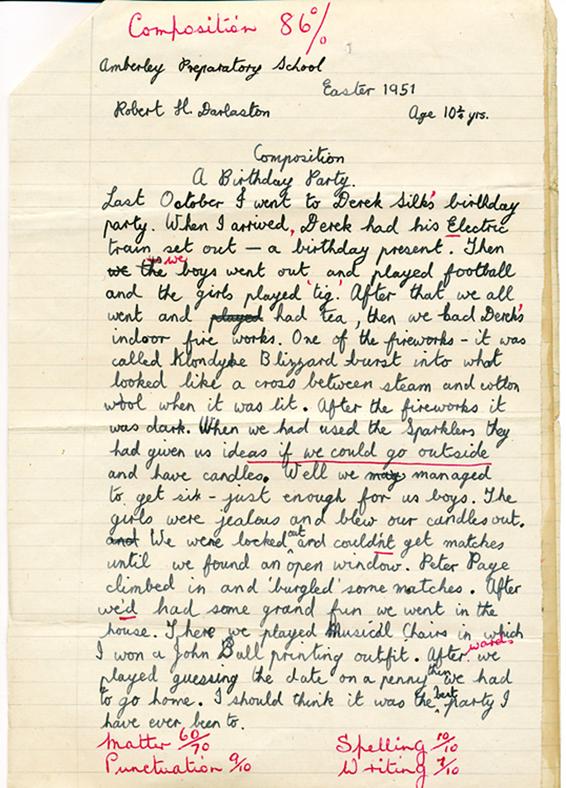 Composition 86%
Amberley Preparatory School
Easter 1951
Robert H. Darlaston Age 10½ yrs.
Composition
A Birthday Party.
Last October I went to Derek Silk's birthday
party. When I arrived, Derek had his Electric
train set out — a birthday present. Then
we the boys went out and played football
and the girls played 'tig'. After that we all
went and played had tea, then we had Derek's
indoor fire works. One of the fireworks - it was
called Klondyke Blizzard burst into what
looked like a cross between steam and cotton
wool when it was lit. After the fireworks it
was dark. When we had used the Sparklers they
had given us ideas if we could go outside
and have candles. Well we may managed
to get six - just enough for us boys. The
girls were jealous and blew our candles out.
and We were locked out and couldn't get matches
until we found an open window. Peter Page
climbed in and 'burgled' some matches. After
we'd had some grand fun we went in the
house. There we played Musical Chairs in which
I won a John Bull printing outfit. Afterwards we
played guessing the date on a penny then we had
to go home. I should think it was the best party I
have ever been to.
Matter 60/70 Spelling 10/10
Punctuation 9/10 Writing 7/10